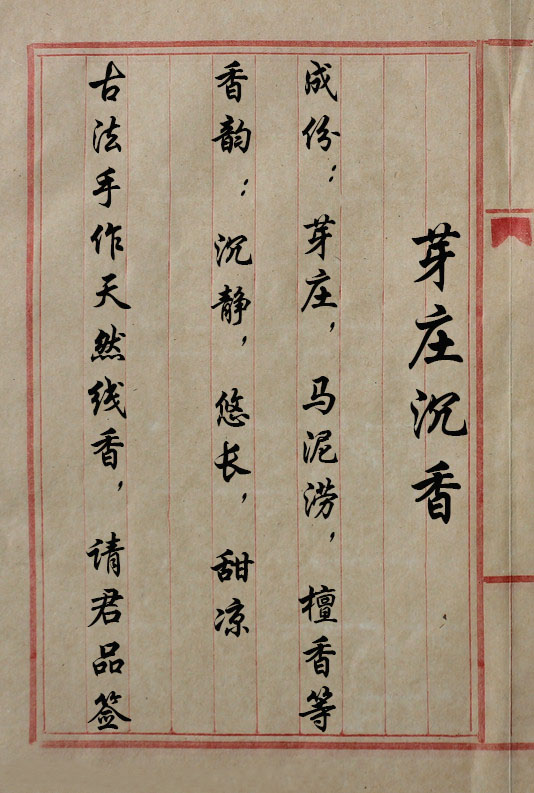 芽庄沉香
成份：芽庄，马泥涝，檀香等
香韵：沉静，悠长，甜凉
古法手作天然线香，请君品签